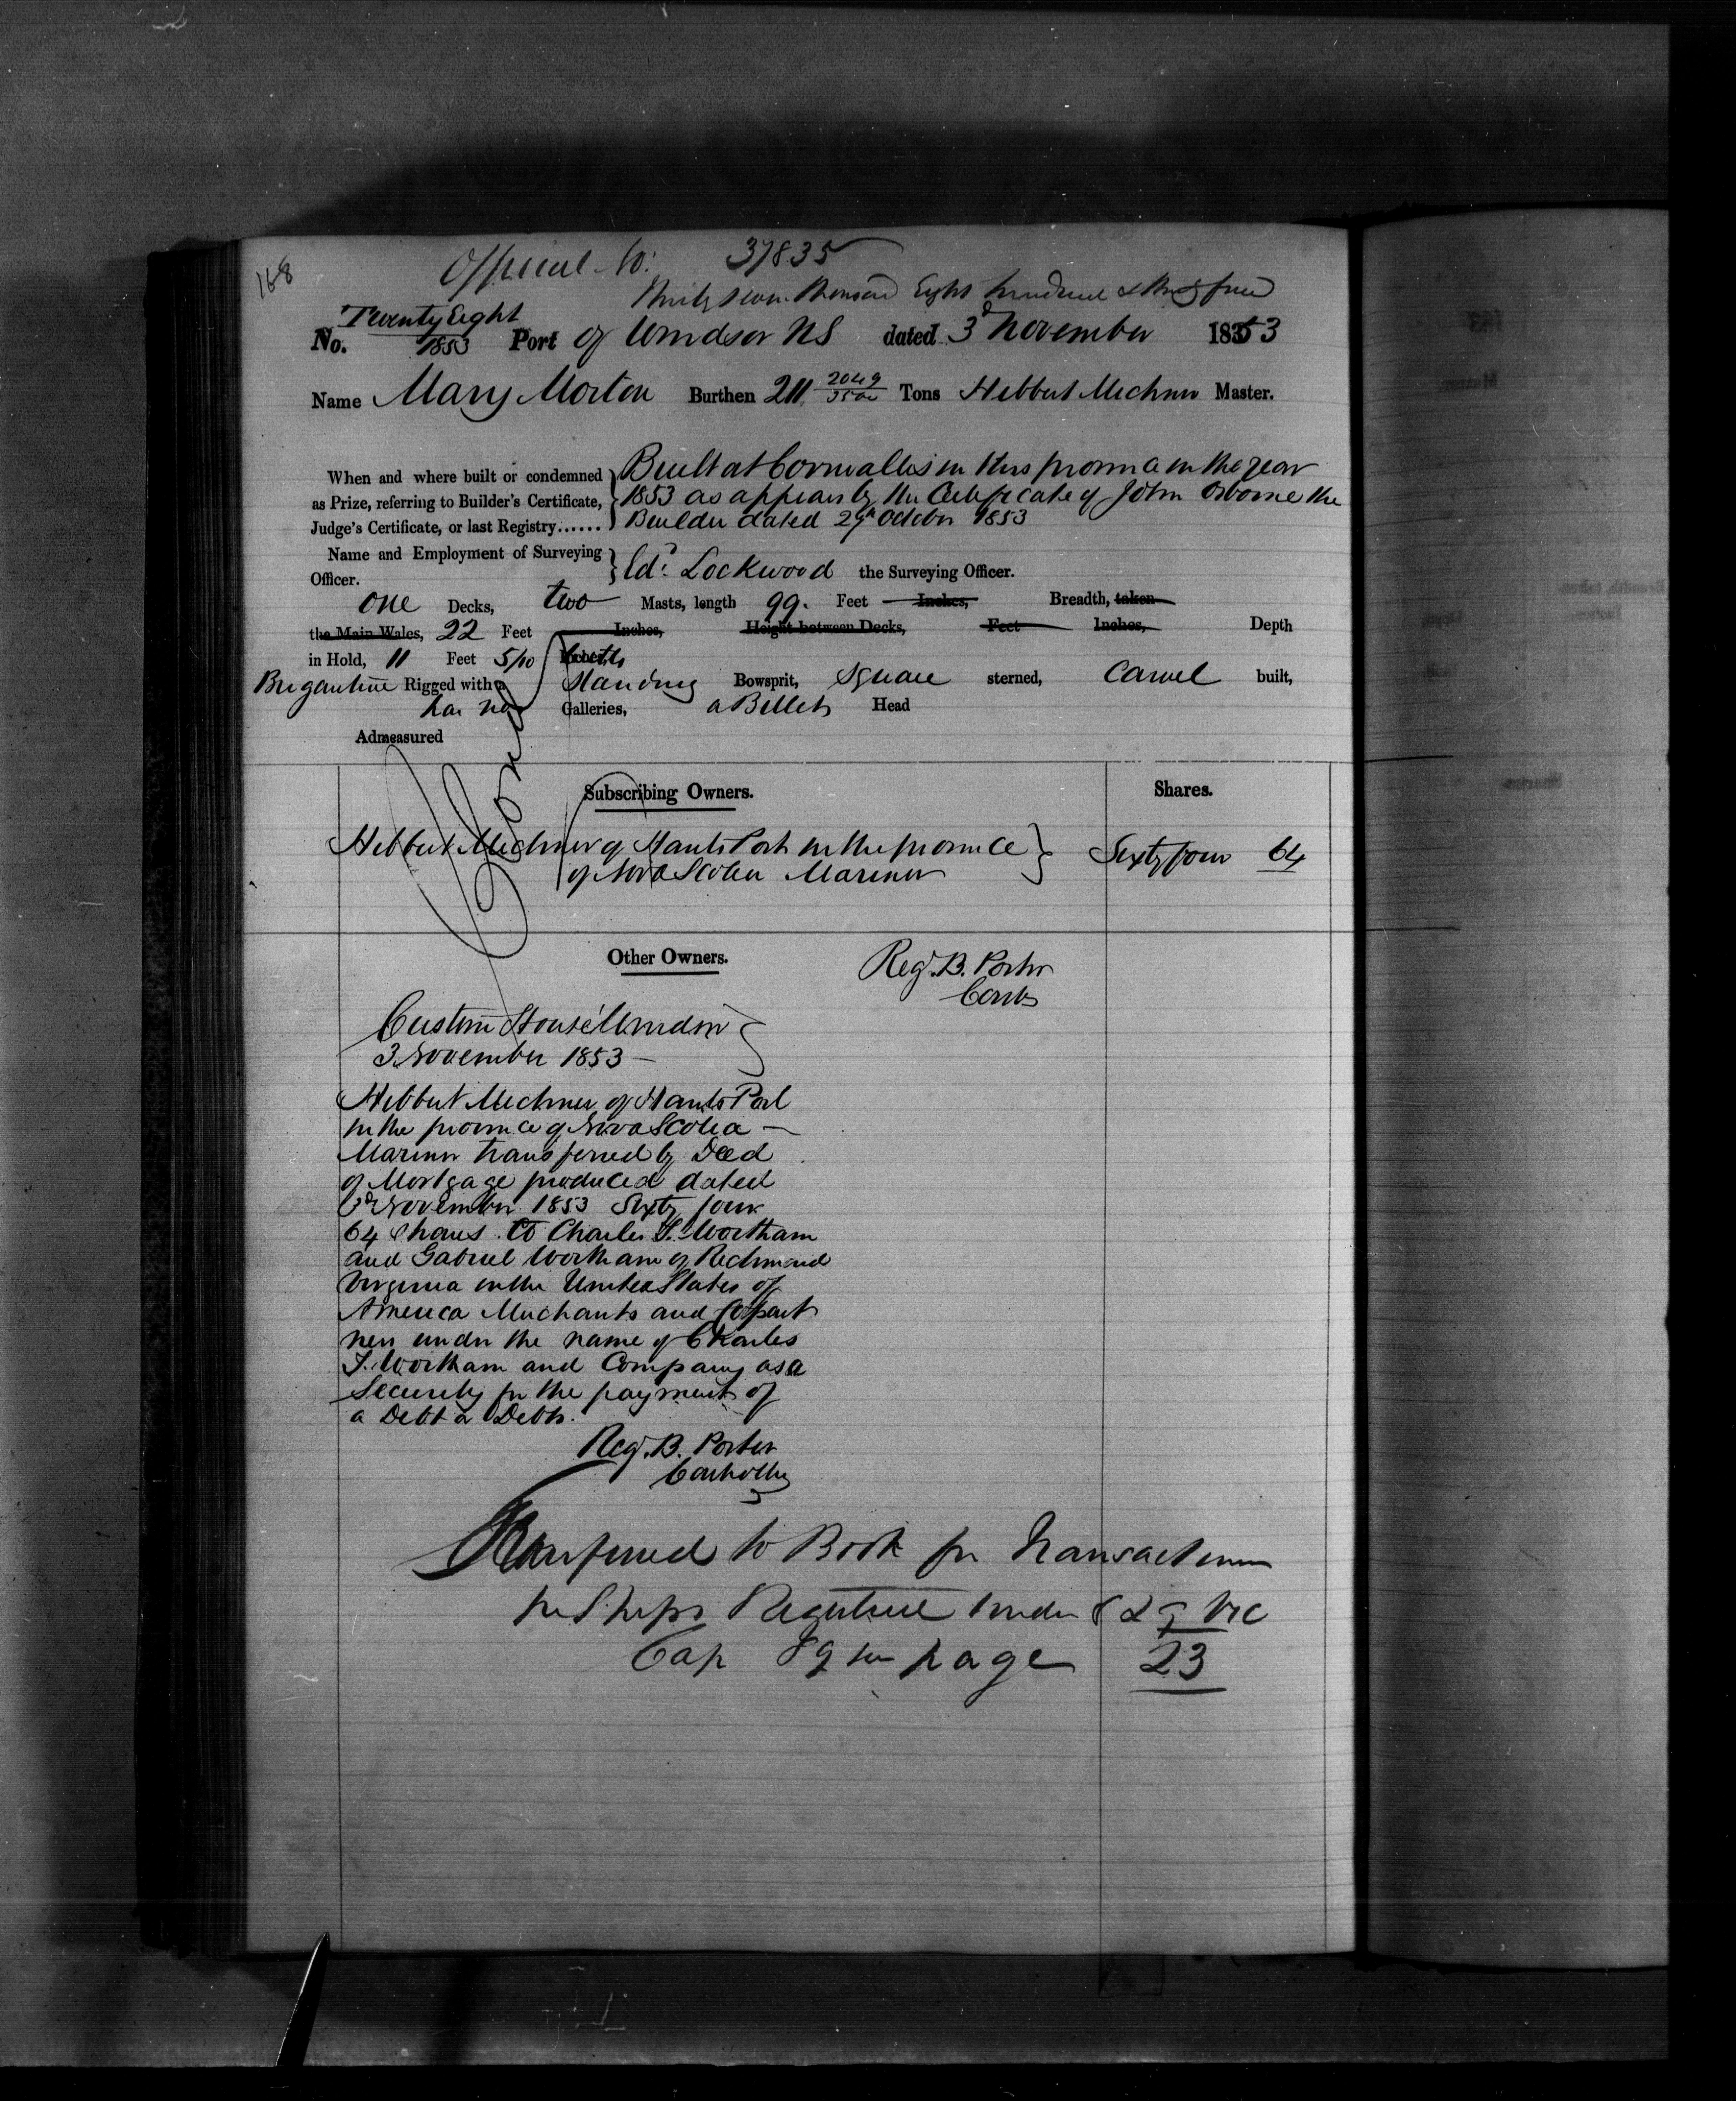 168
Official No: 37835
Thirty seven thousand Eight hundred & thirty five
Twenty Eight
No. 1853 Port of Windsor NS dated 3d November 1853
Name Mary Morton Burthen 211 2049/3500 Tons Hebbert Mechner Master.
When and where built or condemned as Prize, referring to Builder's Certificate, Judge's Certificate, or last Registry......
Built at Cornwallis in this province in the year
1853 as appears by the Certificate of John Osborne the
Builder dated 29th October 1853
Name and Employment of Surveying Officer.
Edd. Lockwood the Surveying Officer.
one Decks, two Masts, length 99. Feet Inches, Breadth, taken
the Main Wales, 22 Feet Inches, Height between Decks, Feet Inches, Depth
in Hold, 11 Feet 5/10 tenths
Brigantine Rigged with a Standing Bowsprit, Square sterned, Carvel built,
has no Galleries, a Billet Head
Admeasured
Subscribing Owners. Shares.
Hebbert Mechner of Hants Port in the province
of Nova Scotia Mariner
Sixty four 64
Other Owners.
Regd. B. Porter
Contr
Custom House Windsor
3 November 1853 —
Hebbert Mechner of Hants Port
in the province of Nova Scotia —
Mariner transferred by Deed
of Mortgage produced dated
3d November 1853 Sixty four
64 Shares to Charles T. Wortham
and Gabriel Wortham of Richmond
Virginia in the United States of
America Merchants and Copart
ners under the name of Charles
T. Wortham and Company as a
Security for the payment of
a Debt or Debts.
Regd. B. Porter
Transferred to Book for Transactions
for Ships Registered under 8 & 9 Vic
Cap 89 see page 23